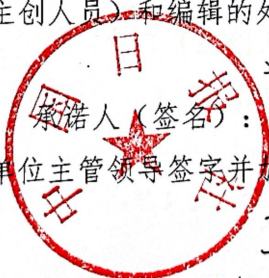 主创人员)和编辑的
承诺人(签名):
单位主管领导签字并
中国日报社